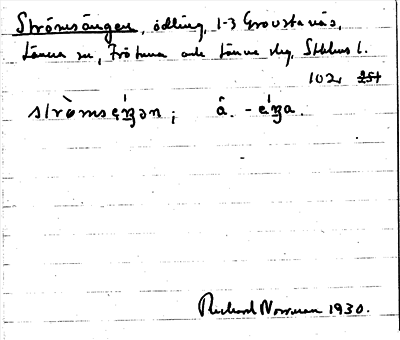 Strömsängen, odling, 1-3 Grovstanäs,
Länna sn, Frötuna och Länna skg, Sthlms l.
102, 251
stròmsęŋən; â. -ęŋa.
Rickard Norman 1930.